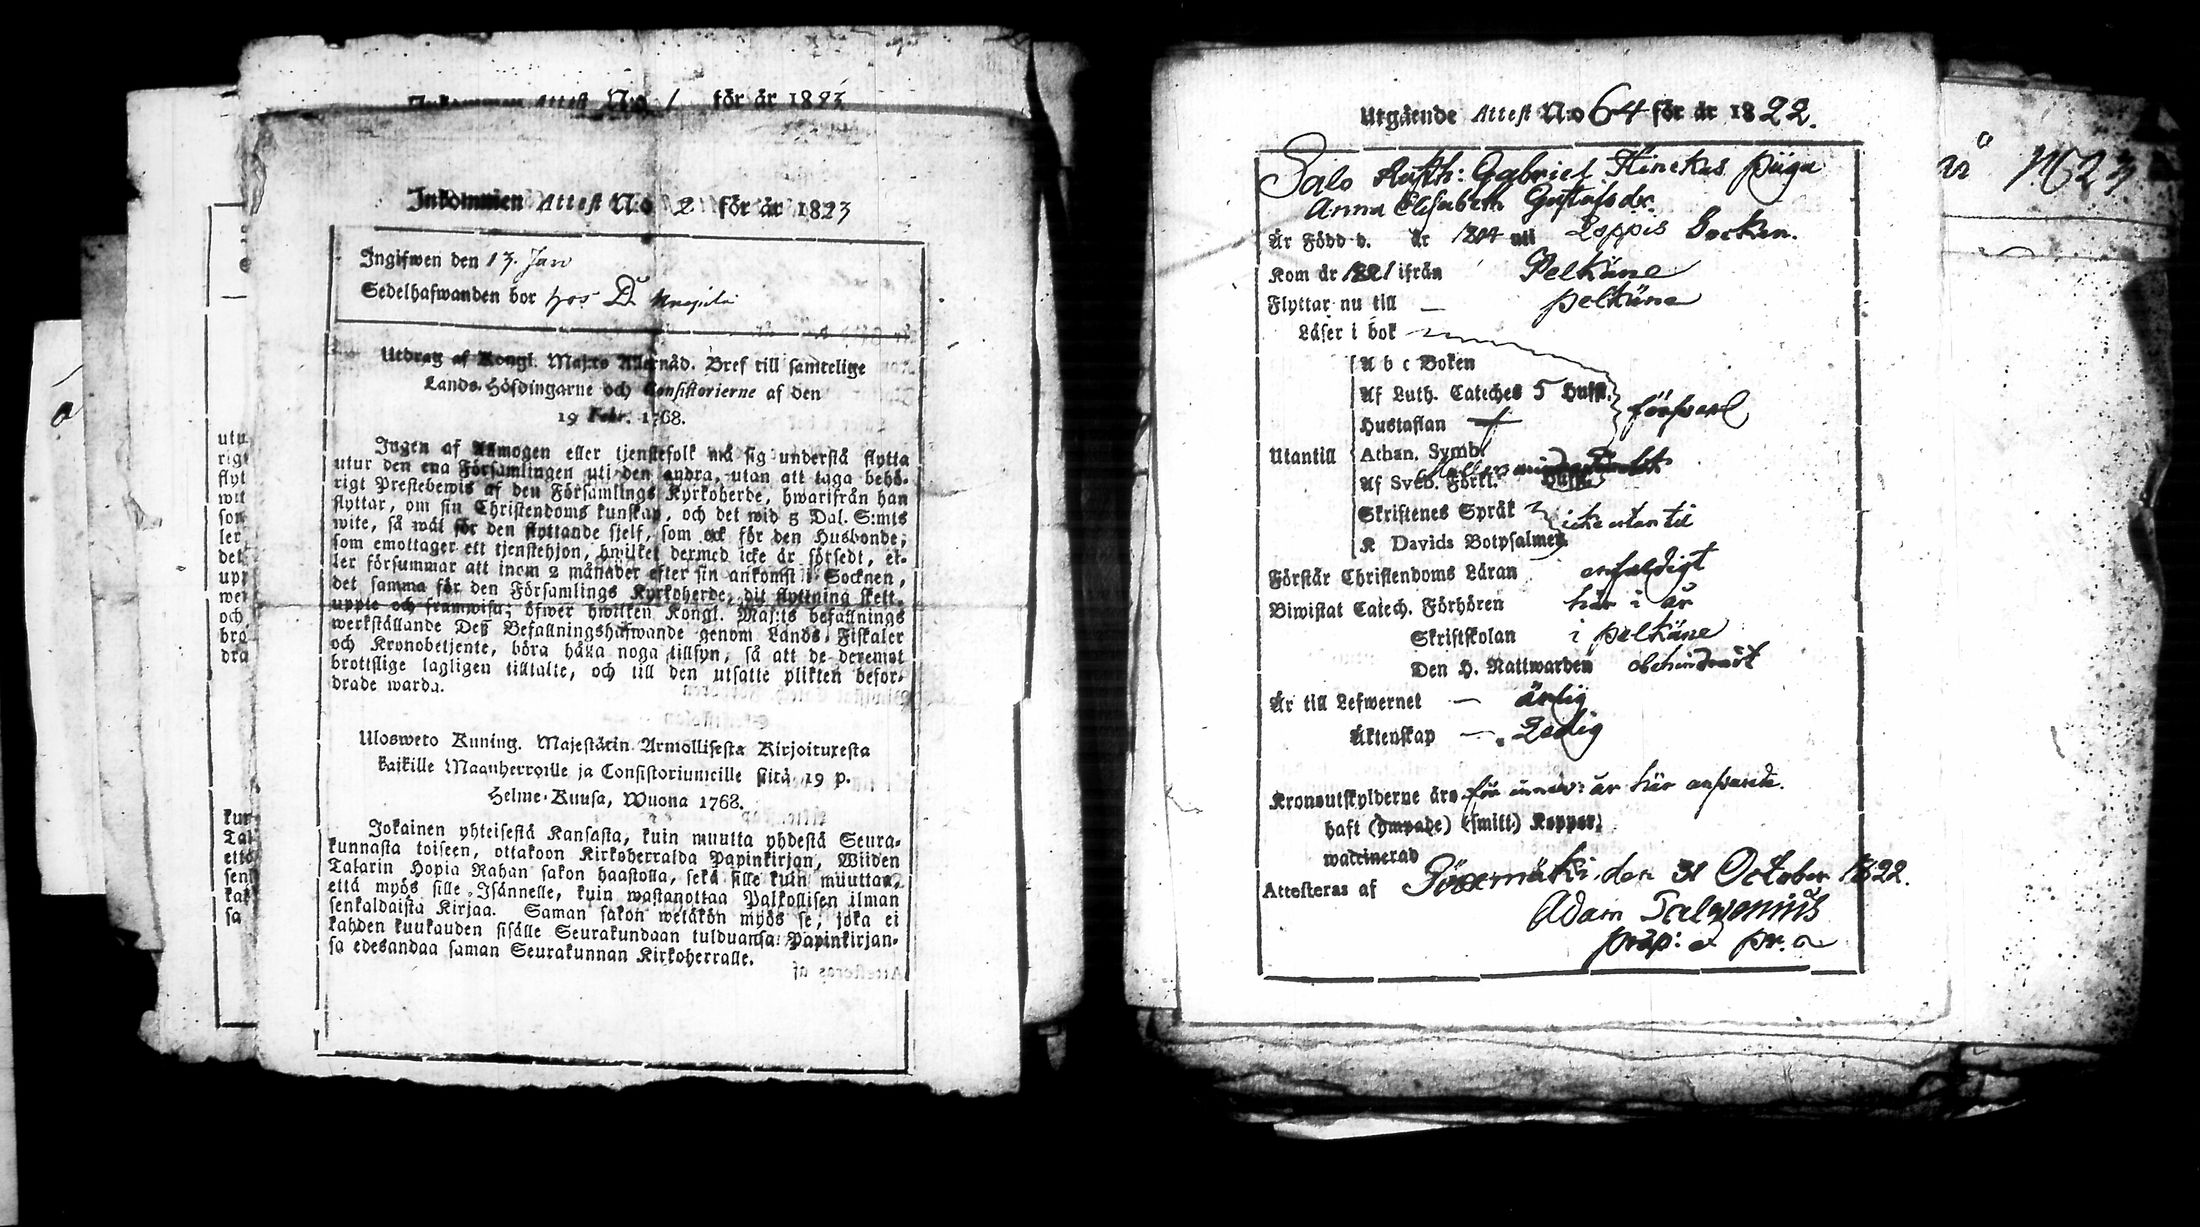 Inkommen Attest N:o 1 för år 1823
Inkommen Attest N:o 2 för år 1823
Ingifwen den 13. Jan
Sedelhafwanden bor hos D.
Utdrag af Kongl. Maj:ts Allernåd. Bref till samtelige
Lands-Höfdingarne och Consistorierne af den
19 Febr. 1768.
Ingen af Allmogen eller tjenstefolk må sig understå flytta
utur den ena Församlingen uti den andra, utan att taga behö-
rigt Prestebewis af den Församlings Kyrkoherde, hwarifrån han
flyttar, om sin Christendoms kunskap, och det wid 5 Dal. S:mts
wite, så wäl för den flyttande sjelf, som ock för den Husbonde,
som emottager ett tjenstehjon, hwilket dermed icke är försedt, el-
ler försummar att inom 2 månader efter sin ankomst i Socknen,
det samma för den Församlings Kyrkoherde, dit flyttning skett,
uppte och framwisa; öfwer hwilken Kongl. Maj:ts befallnings
werkställande Deß Befallningshafwande genom Lands Fiskaler
och Kronobetjente, böra hålla noga tillsyn, så att de deremot
brottslige lagligen tilltalte, och till den utsatte plikten befor-
drade warda.
Ulosweto Kuning. Majestätin Armollisesta Kirjoituxesta
kaikille Maanherroille ja Consistoriumeille siitä 19 p.
Helme-Kuusa, Wuona 1768.
Jokainen yhteisestä Kansasta, kuin muutta yhdestä Seura-
kunnasta toiseen, ottakoon Kirkoherralda Papinkirjan, Wiiden
Talarin Hopia Rahan sakon haastolla, sekä sille kuin muuttaa,
että myös sille Isännelle, kuin wastanottaa Palkollisen ilman
senkaldaista Kirjaa. Saman sakon wetäkön myös se, joka ei
kahden kuukauden sisälle Seurakundaan tulduansa Papinkirjan-
sa edesandaa saman Seurakunnan Kirkoherralle.
Utgående Attest N:o 64 för år 1822.
Salo Rusth: Gabriel Hinrikss piga
Anna Elisabeth Gustafsdr.
Är Född d. år 1804 uti Loppis Socken.
Kom år 1821 ifrån Pelkäne
Flyttar nu till — pelkäne
Läser i bok
A b c Boken
Af Luth. Cateches 5 Hufst.
Hustaflan
försvarl
Utantill
Athan. Symb.
Af Sveb. Förkl.
Skriftenes Språk
icke utantil
K Davids Botpsalmer
Förstår Christendoms Läran enfaldigt
Biwistat Catech. Förhören här i år
Skriftskolan i pelkäne
Den H. Nattwarden obehindradt
Är till Lefwernet — ärlig
Äktenskap — Ledig
Kronoutskylderne äro för innew: år här
haft (ympade) (smitt.) Koppor,
waccinerad
Attesteras af den 31 October 1822.
Adam
präp: & pr.
N 23